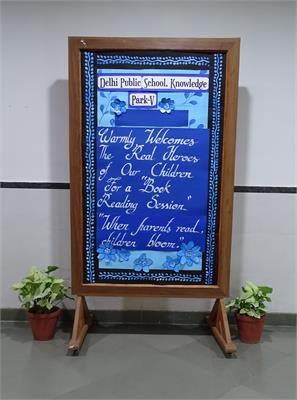 Delhi Public School, Knowledge
Park-V
Warmly Welcomes
The Real Heroes
of Our Children
"For a "Book
Reading Session"
"When parents read,
children bloom."